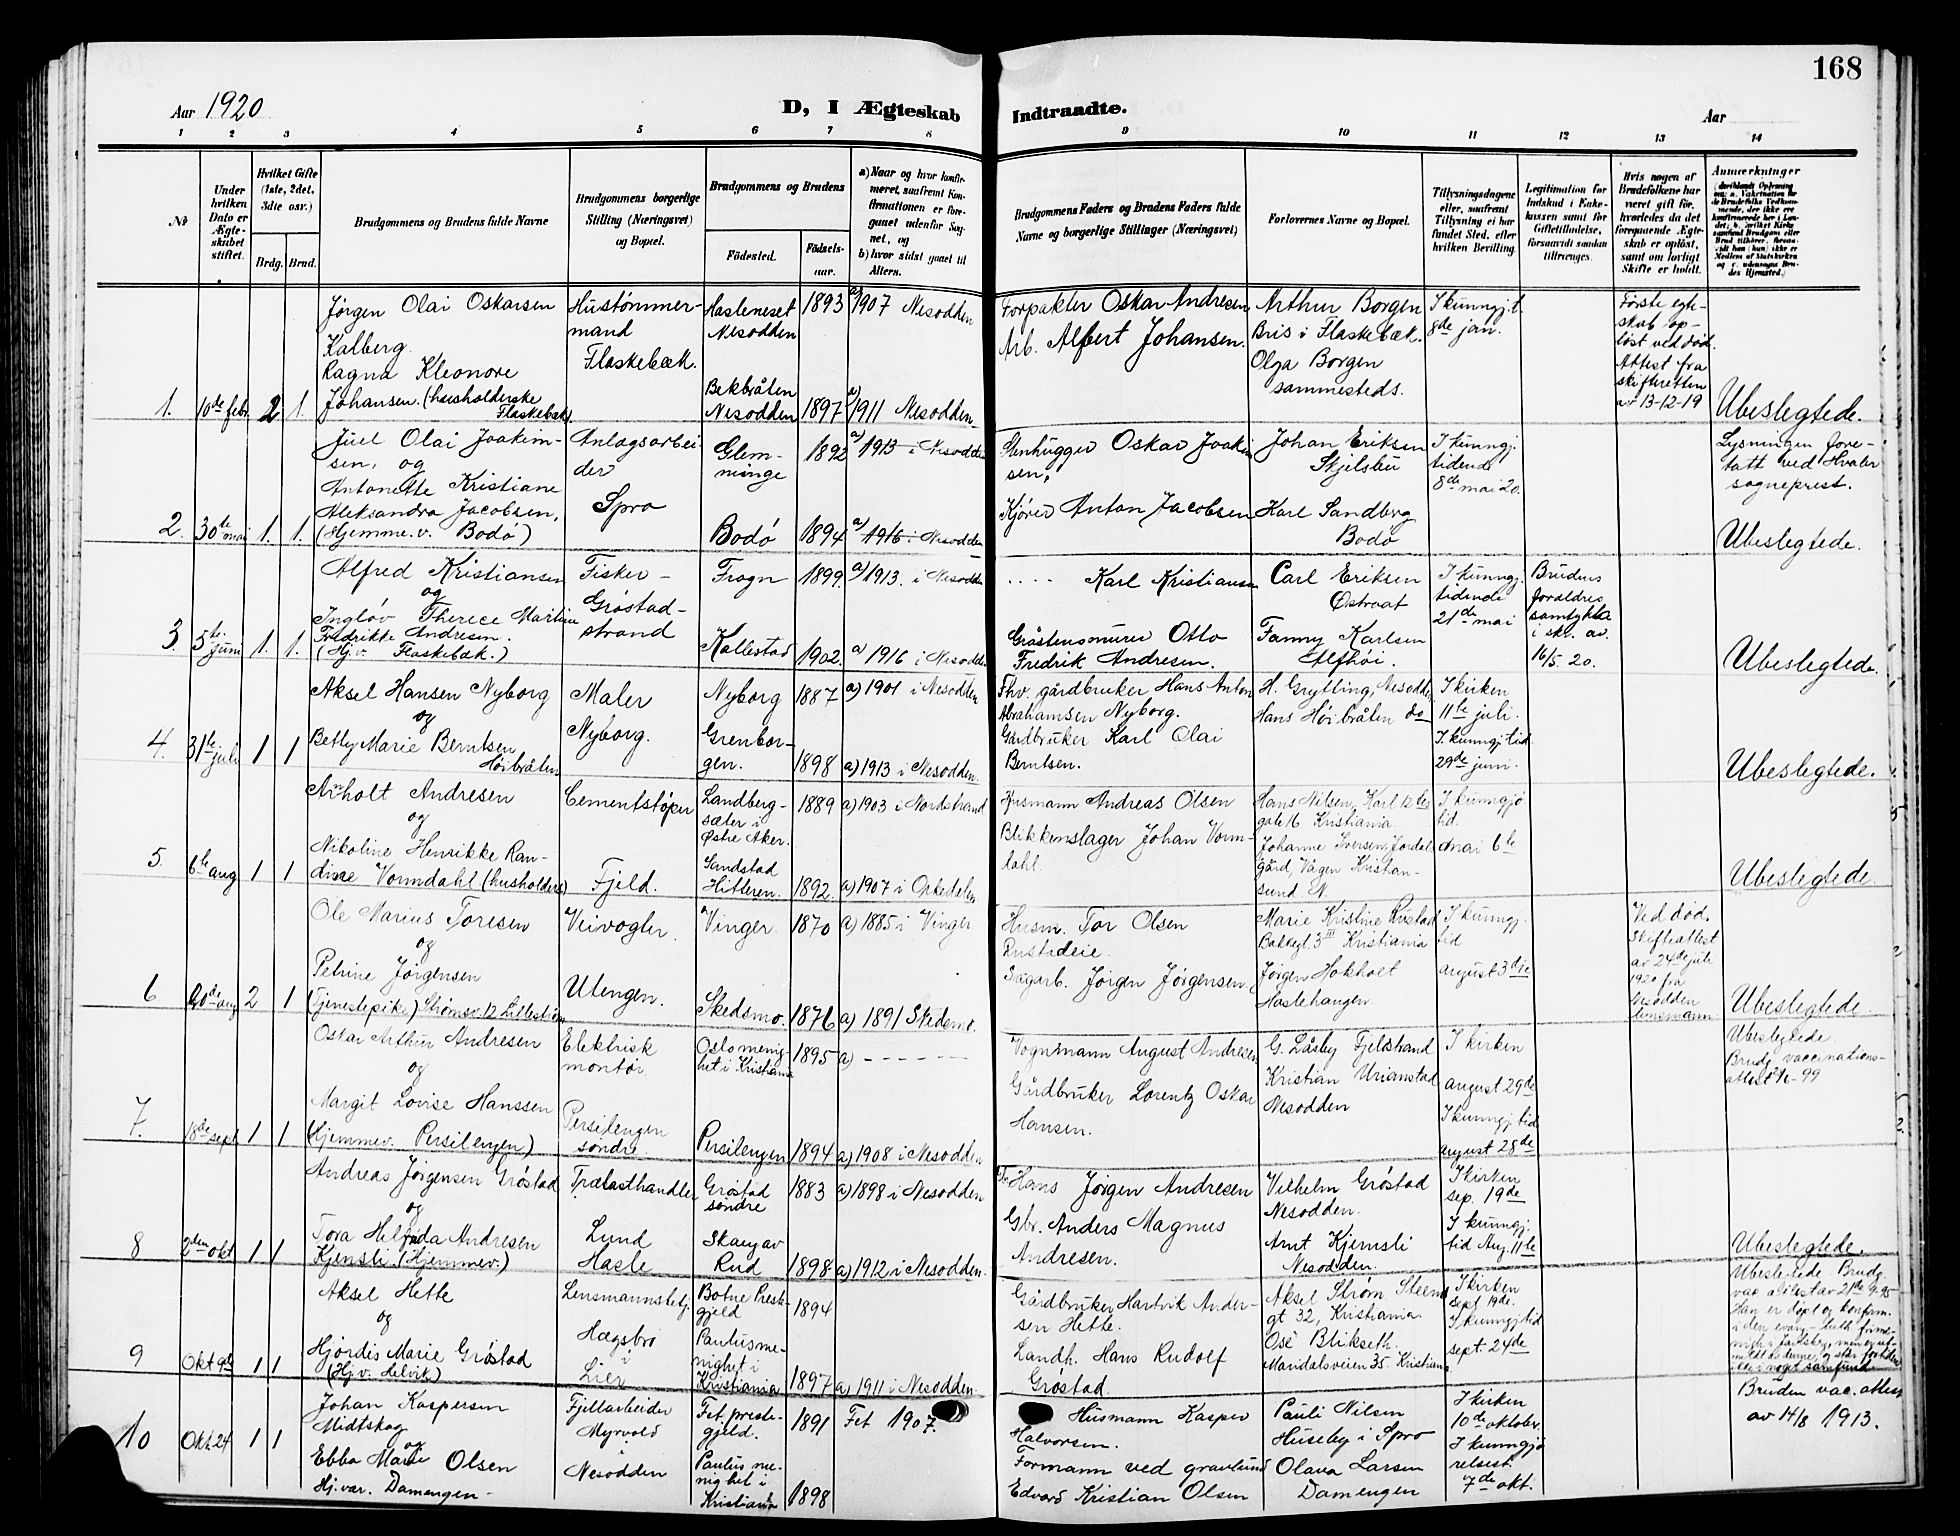 168
Aar 1920
D, I Ægteskab Indtraadte.
Aar
1 2 3 4 5 6 7 8 9 10 11 12 13 14
№
Under hvilken Dato er Ægteskabet stiftet.
Hvilket Gifte (1ste, 2det, 3die osv.)
Brdg. Brud.
Brudgommens og Brudens fulde Navne
Brudgommens borgerlige Stilling (Næringsvei) og Bopæl.
Brudgommens og Brudens
Födested. Födselsaar.
a) Naar og hvor konfirmeret, saafremt Konfirmationen er foregaaet udenfor Sognet, og
b) hvor sidst gaaet til Alters.
Brudgommens Faders og Brudens Faders fulde Navne og borgerlige Stillinger (Næringsvei)
Forlovernes Navne og Bopæl.
Tillysningsdagene eller, saafremt Tillysning ei har fundet Sted, efter hvilken Bevilling.
Legitimation for Indskud i Enkekassen samt for Giftetilladelse, forsaavidt saadan tiltrænges.
Hvis nogen af Brudefolkene har været gift för, hvorledes da det foregaaende Ægteskab er oplöst, samt om lovligt Skifte er holdt.
Anmærkninger
1. 10de febr. 2 1.
Jørgen Olai Oskarsen
Kalberg.
Ragna Kleonore
Johansen. (husholderske
Flaskebæk)
Hustømmermand
Flaskebæk.
Hasleneset
Nesodden 1893 a) 1907 Nesodden
Bekbråten
Nesodden 1897 a) 1911 Nesodden
Forpakter Oskar Andresen
Arb. Alfert Johansen.
Arthur Borgen
Bris i Flaskebæk.
Olga Borgen
sammesteds.
I kunngj.t.
8de jan.
Første egteskab opløst ved død.
Attest fra
skifteretten
av 13-12-19
Ubeslegtede.
2. 30te mai 1. 1.
Juel Olai Joakimsen, og
Antonette Kristiane
Aleksandra Jacobsen,
(Hjemme.v. Bodø)
Anlægsarbeider
Spro
Glemminge 1892 a) 1913 i Nesodden
Bodø 1894 a) 1916 i Nesodden
Stenhugger Oskar Joakimsen,
Kjører Anton Jacobsen
Johan Eriksen
Skjelsbu
Karl Sandberg
Bodø
I kunngj.
tidende
8de mai 20.
Lysningen foretatt ved Hvaler
sogneprest.
Ubeslegtede.
3. 5te juni 1. 1.
Alfred Kristiansen
og
Ingløv Therece Martine
Fredrikke Andresen.
(Hj.v. Flaskebæk.)
Fisker -
Grøstadstrand
Frogn 1899. a) 1913. i Nesodden
Kallestad 1902. a) 1916 i Nesodden
.... Karl Kristiansen
Gråstensmurer Otto
Fredrik Andresen.
Carl Eriksen
Østraat
Fanny Karlsen
Alfhøi.
I kunngj.
tidende
21de mai
Brudens
foreldres
samtykke
i skr. av.
16/5. 20.
Ubeslegtede.
4. 31te juli 1 1
Aksel Hansen Nyborg
og
Betty Marie Berntsen
Høibråten
Maler
Nyborg.
Nyborg 1887 a) 1901 i Nesodden
Grenborgen. 1898 a) 1913 i Nesodden.
Fhv. gårdbruker Hans Anton
Abrahamsen Nyborg.
Gårdbruker Karl Olai
Berntsen.
H. Grytting, Nesodden
Hans Høibråten do
I kirken
11te juli.
I kunngj tid
29de juni.
Ubeslegtede.
5 6te aug 1 1
Arnholt Andresen
og
Nikoline Henrikke Randine Vormdahl (husholders)
Cementstøper
Fjeld.
Landbergsæter i
Østre Aker. 1889 a) 1903 i Nordstrand
Sandstad
Hitteren. 1892. a) 1907 i Orkedalen
Husmann Andreas Olsen
Blikkenslager Johan Vormdahl
Hans Nilsen, Karl 12tes
gate 16 Kristiania.
Johanne Iversen, Jordal
gård, Vågen Kristiansund N.
I kunngjø
tid.
mai 6te
Ubeslegtede
6 20de aug 2 1
Ole Marius Toresen
og
Petrine Jørgensen
(Tjenestepike) Strømsv. 12 Lillestrøm
Veivogter.
Utengen.
Vinger. 1870 a) 1885 i Vinger
Skedsmo. 1876 a) 1891 Skedsmo.
Husm. Tor Olsen
Rustadeie.
Sagarb. Jørgen Jørgensen.
Marie Kristine Rustad
Bakkegt. 3 III Kristiania
Jørgen Hokholt
Haslehangen.
I kunngj.
tid
august 3dje
Ved død.
Skifteattest
av 24de juli
1920 fra
Nesodden
lensmann
Ubeslegtede
7. 18de sept 1 1
Oskar Arthur Andresen
og
Margit Lovise Hanssen
(Hjemmev. Persilengen)
Elektrisk
montør.
Persilengen
søndre.
Oslo menighet i Kristiania 1895 a) - - - - - -
Persilengen 1894 a) 1908 i Nesodden
Vognmann August Andresen
Gårdbruker Lorentz Oskar
Hansen.
G. Låsby Fjeldstrand
Kristian Urianstad
Nesodden
I kirken
august 29de
I kunngj tid
august 28de
Ubeslegtede.
Brudg. vaccinationsattest
8 2den okt 1 1
Andreas Jørgensen Grøstad
og
Tora Helfrida Andresen
Kjensli (Hjemmev.)
Trælasthandler
Lund
Hasle
Grøstad
søndre 1883 a) 1898 i Nesodden
Skaugav
Rud 1898 a) 1912 i Nesodden.
Hans Jørgen Andresen
Gbr. Anders Magnus
Andresen.
Vilhelm Grøstad
Nesodden.
Arnt Kjensli
Nesodden.
I kirken
sep. 19de
I kunngj.
tid Aug. 11te
Ubeslegtede.
9 Okt 9de 1 1
Aksel Hette
og
Hjørdis Marie Grøstad
(Hj.v. Helvik)
Lensmannsbetj.
Hægsbro
i
Lier
Botne Prestegjeld 1894
Paulusmenighet i
Kristiania 1897 a) 1911 i Nesodden
Gårdbruker Hartvik Andersen Hette.
Landh. Hans Rudolf
Grøstad.
Aksel Strøm Steensgt 32, Kristiania.
Ose Blikseth
Mandalsveien 35. Kristiania
I kirken
sept 19de.
I kunngj tid
sept. 24de
Ubeslegtede. Brudg.
vac. attest av 21de 9-95
Han er døpt og konfirm.
10 Okt. 24 1 1
Johan Kaspersen
Midtskog
og
Ebba Marie Olsen
Hj.vær. Damengen -
Fjellarbeider
Myrvold
i
Nesodden
Fet prestegjeld. 1891 Fet 1907.
Paulus menighet i
Kristiania 1898
Husmann Kasper
Halvorsen.
Formann ved gravlund
Edvard Kristian Olsen
Pauli Nilsen
Huseby i Spro
Olava Larsen
Damengen
I kirken
10de oktobr.
I kunngjørelsest.
7de okt.
Bruden vac. attest
av 14/8 1913.